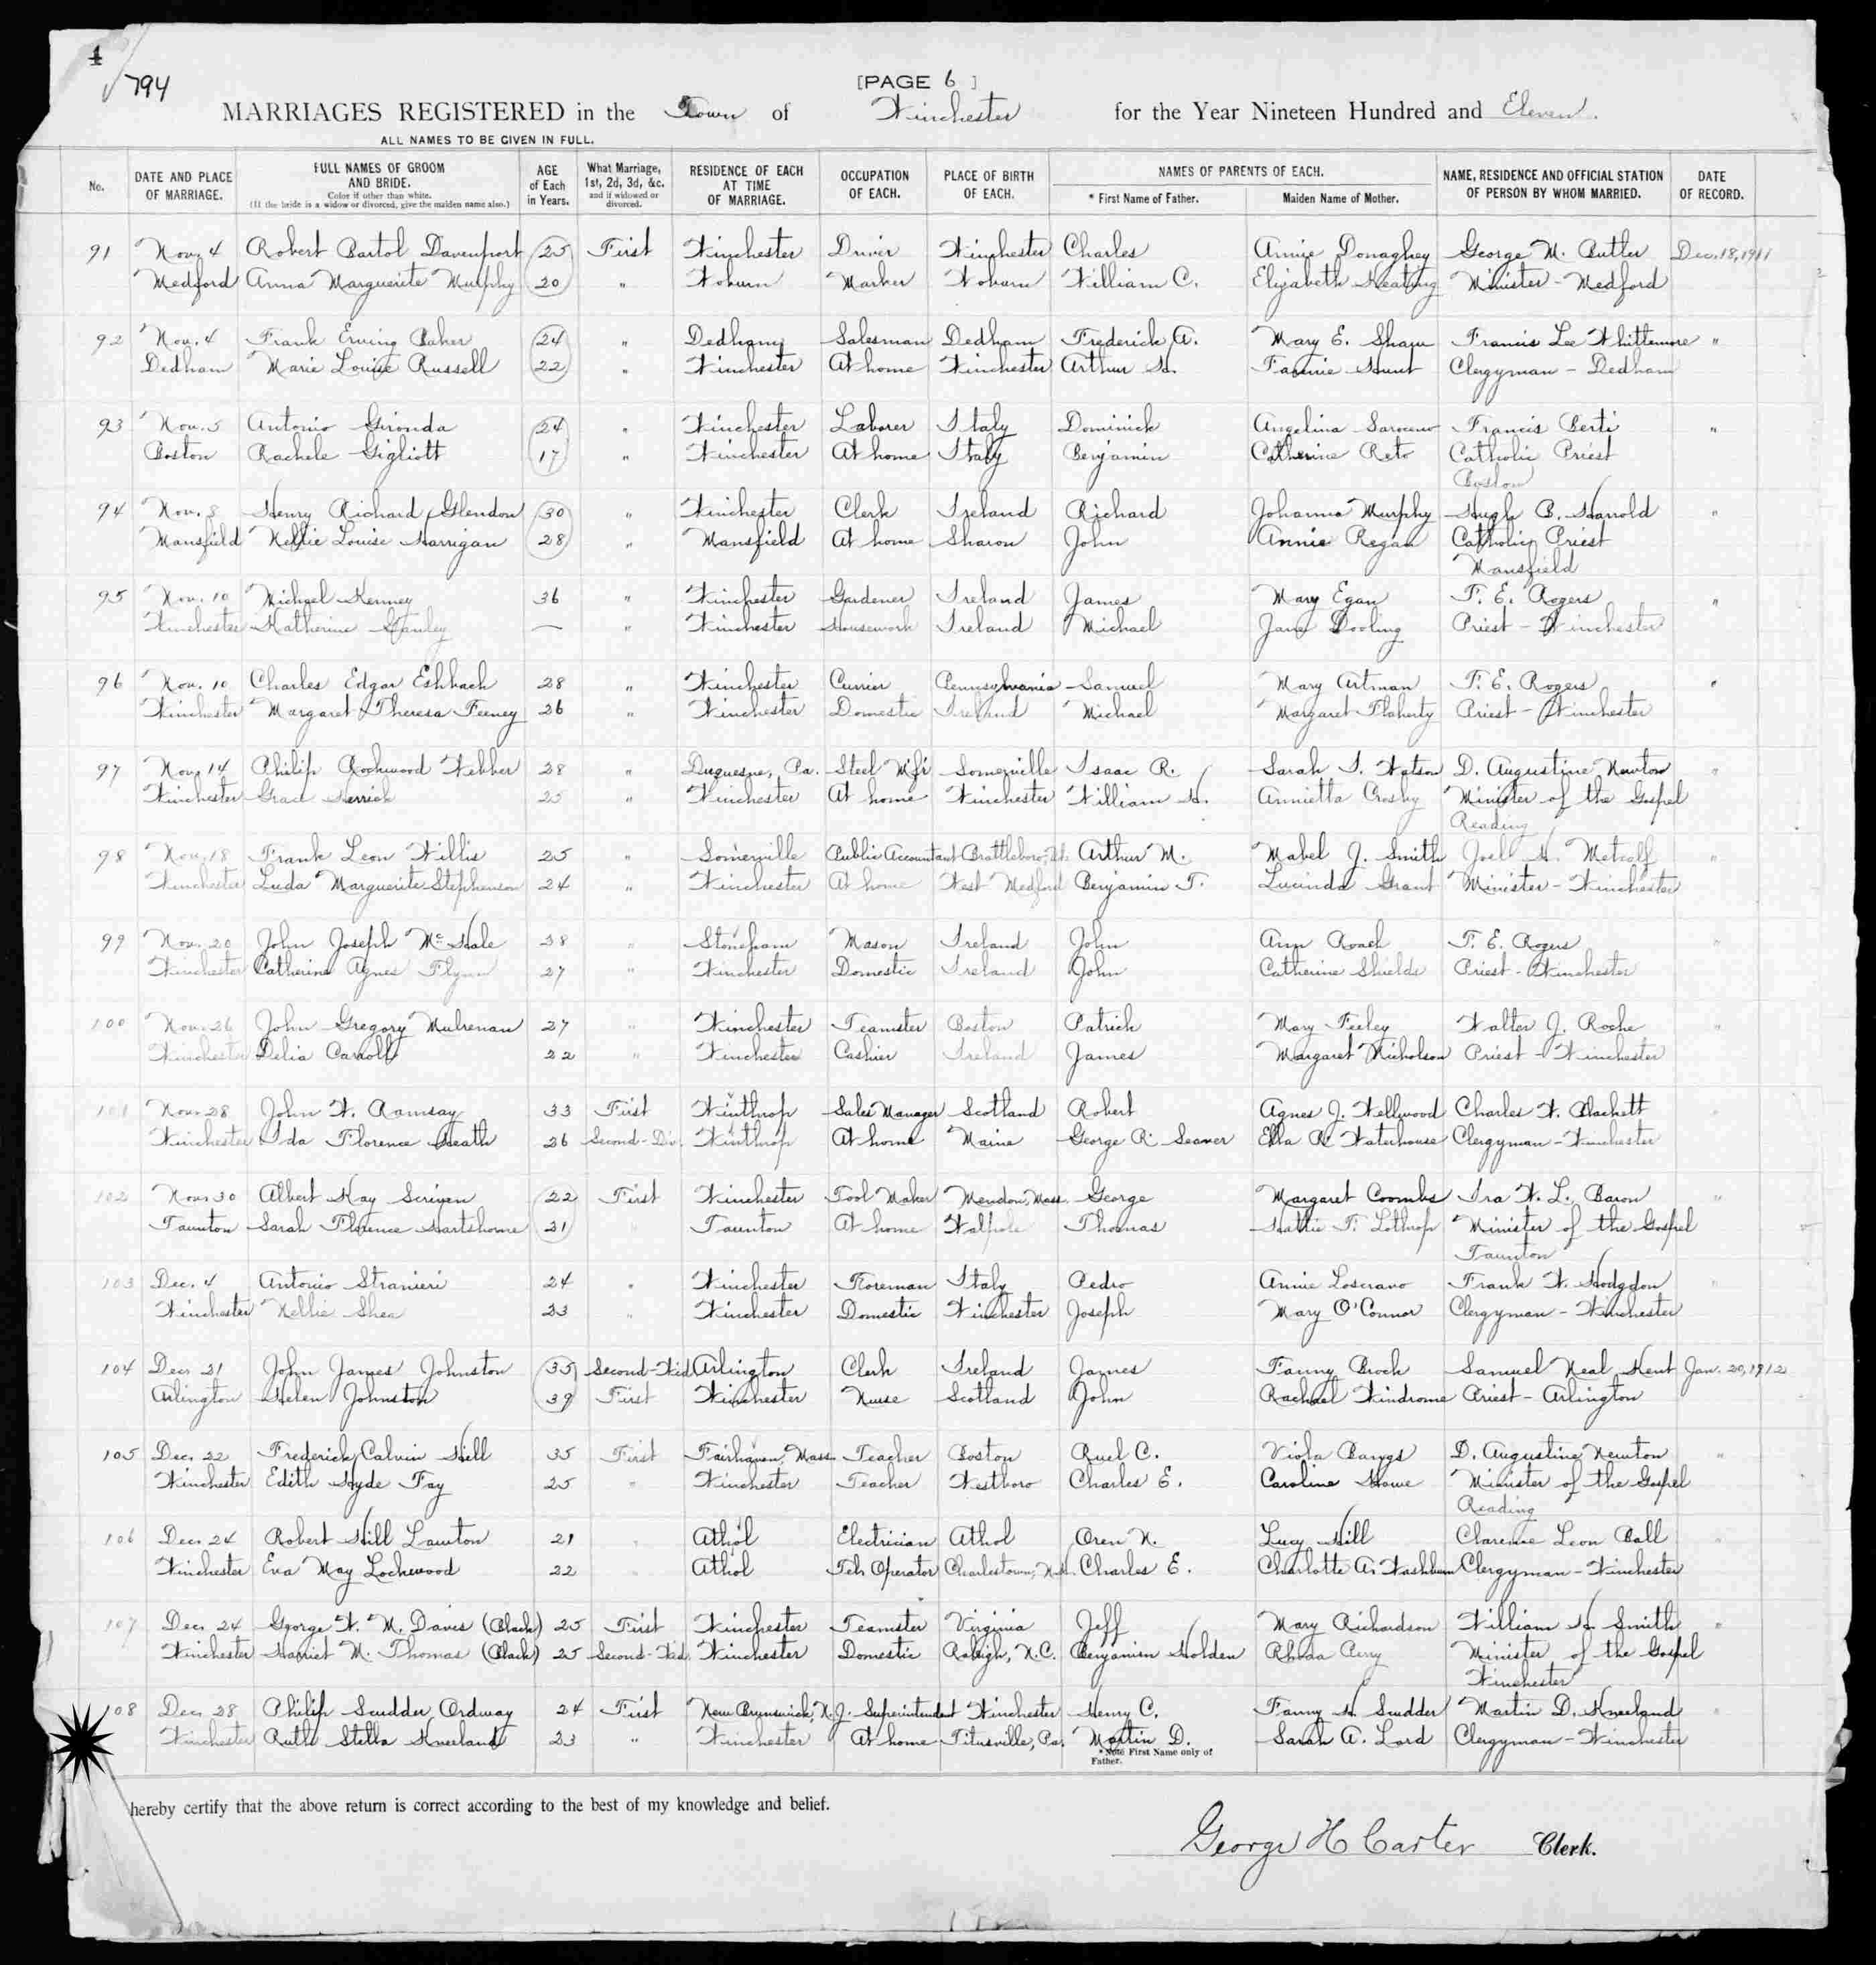 4
794
[PAGE 6]
MARRIAGES REGISTERED in the Town of Winchester for the Year Nineteen Hundred and Eleven.
ALL NAMES TO BE GIVEN IN FULL.
No. DATE AND PLACE OF MARRIAGE. FULL NAMES OF GROOM AND BRIDE. Color if other than white. (If the bride is a widow or divorced, give the maiden name also.) AGE of Each in Years. What Marriage, 1st, 2d, 3d, &c. and if widowed or divorced. RESIDENCE OF EACH AT TIME OF MARRIAGE. OCCUPATION OF EACH. PLACE OF BIRTH OF EACH. NAMES OF PARENTS OF EACH. * First Name of Father. Maiden Name of Mother. NAME, RESIDENCE AND OFFICIAL STATION OF PERSON BY WHOM MARRIED. DATE OF RECORD.
91 Nov. 4 Robert Bartol Davenport 25 First Winchester Driver Winchester Charles Annie Donaghey George M. Butler Dec. 18, 1911
Medford Anna Marguerite Murphy 20 " Woburn Marker Woburn William C. Elizabeth Keating Minister - Medford
92 Nov. 4 Frank Erving Baker 24 " Dedham Salesman Dedham Frederick A. Mary E. Shaw Francis Lee Whittemore "
Dedham Marie Louise Russell 22 " Winchester At home Winchester Arthur H. Fannie Hunt Clergyman - Dedham
93 Nov. 5 Antonio Gironda 24 " Winchester Laborer Italy Dominick Angelina Francis Berti "
Boston Rachele Gigliott 17 " Winchester At home Italy Benjamin Catherine Reto Catholic Priest
Boston
94 Nov. 8 Henry Richard Glendon 30 " Winchester Clerk Ireland Richard Johanna Murphy Hugh B. Harrold "
Mansfield Nellie Louise Harrigan 28 " Mansfield At home Sharon John Annie Regan Catholic Priest
Mansfield
95 Nov. 10 Michael Kenney 36 " Winchester Gardener Ireland James Mary Egan F. E. Rogers "
Winchester Katherine Hanley — " Winchester Housework Ireland Michael Jane Dooling Priest - Winchester
96 Nov. 10 Charles Edgar Eshbach 28 " Winchester Currier Pennsylvania Samuel Mary Artman F. E. Rogers "
Winchester Margaret Theresa Feeney 26 " Winchester Domestic Ireland Michael Margaret Flaherty Priest - Winchester
97 Nov. 14 Philip Rockwood Webber 28 " Duquesne, Pa. Steel M'f'r Somerville Isaac R. Sarah I. Watson D. Augustine Newton "
Winchester Grace Herrick 25 " Winchester At home Winchester William H. Annietta Crosby Minister of the Gospel
Reading
98 Nov. 18 Frank Leon Willis 25 " Somerville Public Accountant Brattleboro, Vt. Arthur M. Mabel J. Smith Joel H. Metcalf "
Winchester Luda Marguerite Stephenson 24 " Winchester At home West Medford Benjamin T. Lucinda Grant Minister - Winchester
99 Nov. 20 John Joseph McHale 38 " Stoneham Mason Ireland John Ann Roach F. E. Rogers "
Winchester Catherine Agnes Flynn 27 " Winchester Domestic Ireland John Catherine Shields Priest - Winchester
100 Nov. 26 John Gregory Mulrenan 27 " Winchester Teamster Boston Patrick Mary Feeley Walter J. Roche "
Winchester Delia Carroll 22 " Winchester Cashier Ireland James Margaret Nicholson Priest - Winchester
101 Nov. 28 John W. Ramsay 33 First Winthrop Sales Manager Scotland Robert Agnes J. Wellwood Charles W. Blackett "
Winchester Ida Florence Heath 36 Second-Div. Winthrop At home Maine George R. Seaver Ella R. Waterhouse Clergyman - Winchester
102 Nov. 30 Albert Kay Scriven 22 First Winchester Tool Maker Mendon, Mass. George Margaret Coombs Ira W. L. Baron "
Taunton Sarah Florence Hartshorne 21 " Taunton At home Walpole Thomas Hattie F. Lothrop Minister of the Gospel
Taunton
103 Dec. 4 Antonio Stranieri 24 " Winchester Foreman Italy Pedro Annie Loscravo Frank W. Hodgdon "
Winchester Nellie Shea 33 " Winchester Domestic Winchester Joseph Mary O'Connor Clergyman - Winchester
104 Dec. 21 John James Johnston 35 Second-Wid Arlington Clerk Ireland James Fanny Brock Samuel Neal Kent Jan. 20, 1912
Arlington Helen Johnston 39 First Winchester Nurse Scotland John Rachael Windrome Priest - Arlington
105 Dec. 22 Frederick Calvin Hill 35 First Fairhaven, Mass. Teacher Boston Ruel C. Viola Bangs D. Augustine Newton "
Winchester Edith Hyde Fay 25 " Winchester Teacher Westboro Charles E. Caroline Howe Minister of the Gospel
Reading
106 Dec. 24 Robert Hill Lawton 21 " Athol Electrician Athol Oren N. Lucy Hill Clarence Leon Ball "
Winchester Eva May Lockwood 22 " Athol Tel. Operator Charlestown, N.H. Charles E. Charlotte A. Washburn Clergyman - Winchester
107 Dec. 24 George W. M. Davis (Black) 25 First Winchester Teamster Virginia Jeff Mary Richardson William H. Smith "
Winchester Harriet M. Thomas (Black) 25 Second-Wid. Winchester Domestic Raleigh, N.C. Benjamin Holden Rhoda Perry Minister of the Gospel
Winchester
108 Dec. 28 Philip Scudder Ordway 24 First New Brunswick, N.J. Superintendent Winchester Henry C. Fanny H. Scudder Martin D. Kneeland "
Winchester Ruth Stella Kneeland 23 " Winchester At home Titusville, Pa. Martin D. Sarah A. Lord Clergyman - Winchester
* Note First Name only of Father.
hereby certify that the above return is correct according to the best of my knowledge and belief.
George H Carter Clerk.